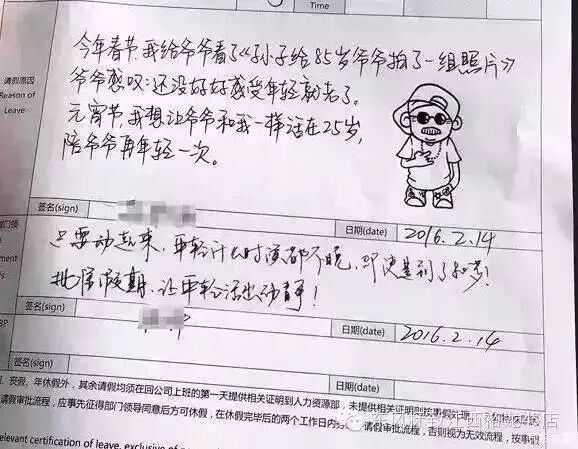 Time
今年春节我给爷爷看了《孙子给85岁爷爷拍了一组照片》
请假原因
Reason of
Leave
爷爷感叹:还没好好感受年轻就老了。
元宵节我想让爷爷和我一样活在25岁,
陪爷爷再年轻一次。
签名(sign)
日期(date)
2016.2.14
部门领
只要动起来,年轻什么时候都不晚,即使是到了80岁!
批准假期,让年轻活出动静!
ment
签名(sign)
日期(date)
2016.2.14
BP
丧假、年休假外,其余请假均须在回公司上班的第一天提供相关证明到人力资源部,未提供相关证明则按事假处理
请假审批流程,应事先征得部门领导同意后方可休假,在休假完毕后的两个工作日内
请假审批流程,否则视为无效流程,按事
relevant certification of leave, exclusive of